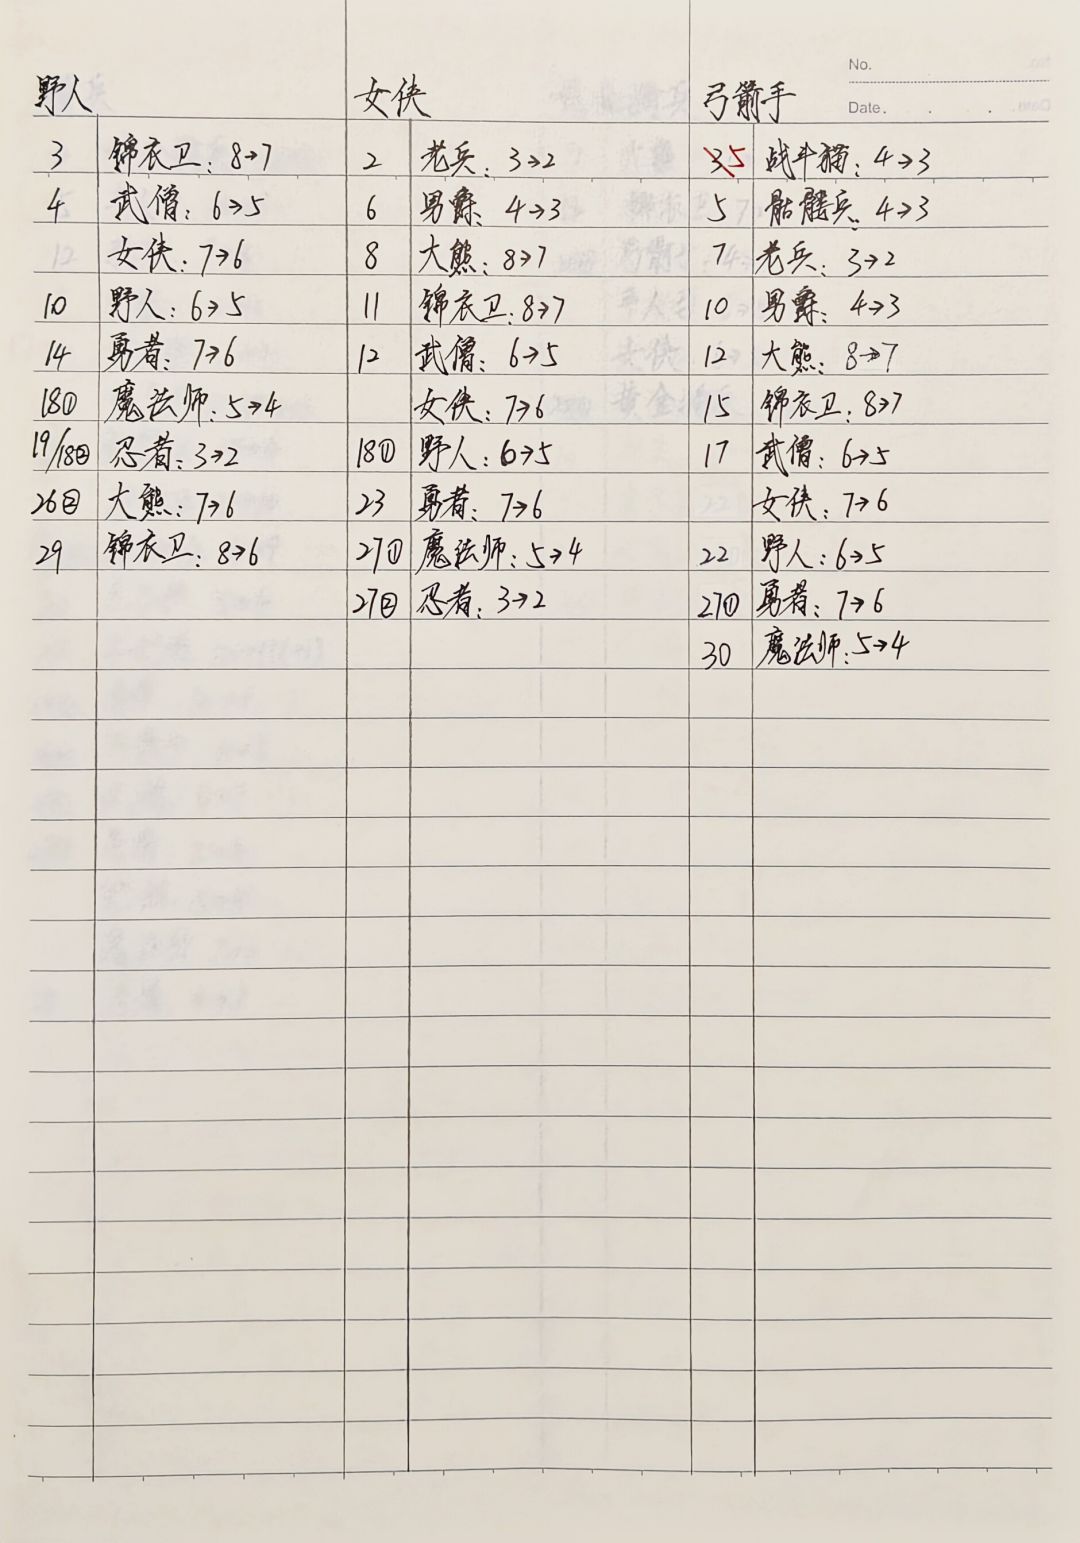 No.
Date.
野人 女侠 弓箭手
3 锦衣卫: 8→7 2 老兵: 3→2 3 5 战斗猫: 4→3
4 武僧: 6→5 6 男爵: 4→3 5 骷髅兵: 4→3
女侠: 7→6 8 大熊: 8→7 7 老兵: 3→2
10 野人: 6→5 11 锦衣卫: 8→7 10 男爵: 4→3
14 勇者: 7→6 12 武僧: 6→5 12 大熊: 8→7
18① 魔法师: 5→4 女侠: 7→6 15 锦衣卫: 8→7
19/18② 忍者: 3→2 18① 野人: 6→5 17 武僧: 6→5
26② 大熊: 7→6 23 勇者: 7→6 女侠: 7→6
29 锦衣卫: 8→6 27① 魔法师: 5→4 22 野人: 6→5
27② 忍者: 3→2 27① 勇者: 7→6
30 魔法师: 5→4